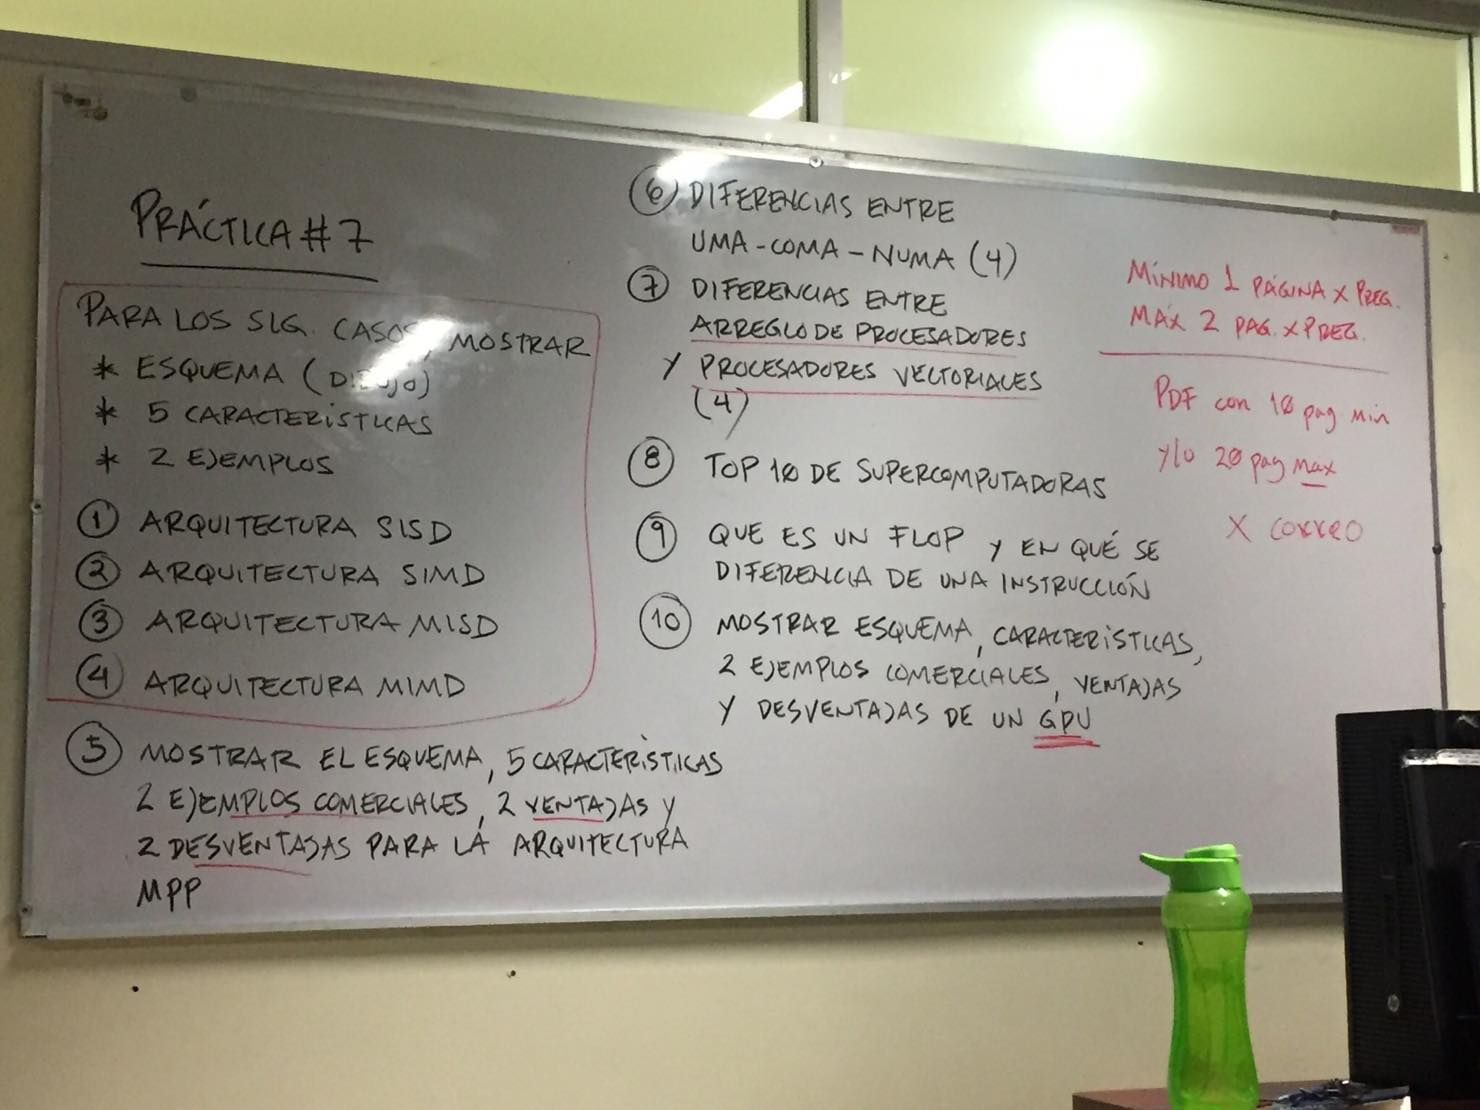 PRÁCTICA #7
PARA LOS SIG. CASOS, MOSTRAR
* ESQUEMA (DIBUJO)
* 5 CARACTERÍSTICAS
* 2 EJEMPLOS
① ARQUITECTURA SISD
② ARQUITECTURA SIMD
③ ARQUITECTURA MISD
④ ARQUITECTURA MIMD
⑤ MOSTRAR EL ESQUEMA, 5 CARACTERÍSTICAS
2 EJEMPLOS COMERCIALES, 2 VENTAJAS Y
2 DESVENTAJAS PARA LA ARQUITECTURA
MPP
⑥ DIFERENCIAS ENTRE
UMA-COMA-NUMA (4)
⑦ DIFERENCIAS ENTRE
ARREGLO DE PROCESADORES
Y PROCESADORES VECTORIALES
(4)
⑧ TOP 10 DE SUPERCOMPUTADORAS
⑨ QUE ES UN FLOP Y EN QUÉ SE
DIFERENCIA DE UNA INSTRUCCIÓN
⑩ MOSTRAR ESQUEMA, CARACTERÍSTICAS,
2 EJEMPLOS COMERCIALES, VENTAJAS
Y DESVENTAJAS DE UN GPU
MÍNIMO 1 PÁGINA X PREG.
MÁX 2 PAG. X PREG.
PDF con 10 pag min
y/o 20 pag max
X correo